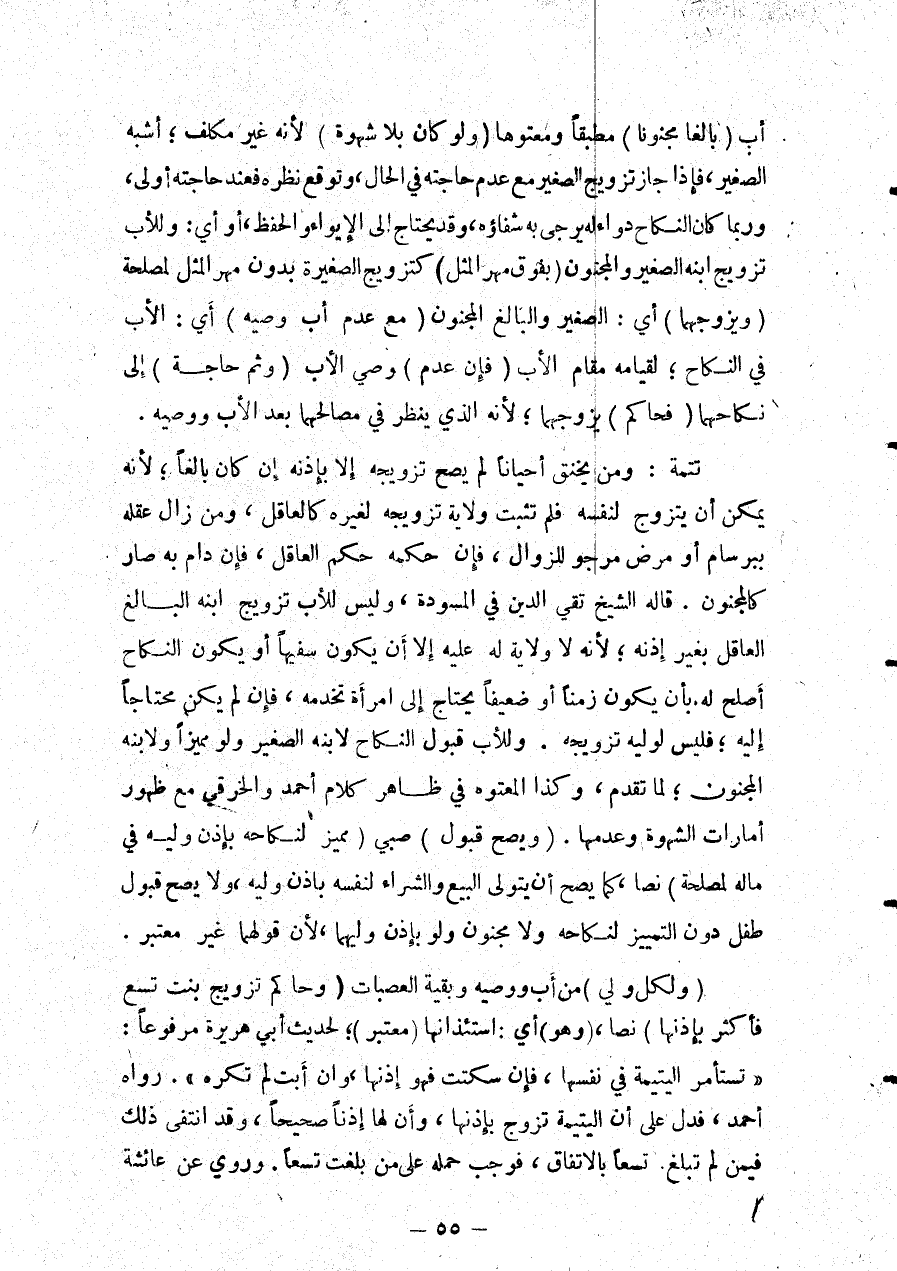 أب ( بالغا مجنونا ) مطبقاً ومعتوها ( ولو كان بلا شهوة ) لأنه غير مكلف ؛ أشبه
الصغير ، فإذا جاز تزويج الصغير مع عدم حاجته في الحال ، وتوقع نظره فعند حاجته أولى ،
وربما كان النكاح دواء له يرجى به شفاؤه ، وقد يحتاج إلى الإيواء والحفظ ، أو أي : وللأب
تزويج ابنه الصغير والمجنون ( بفوق مهر المثل ) كتزويج الصغيرة بدون مهر المثل لمصلحة
( ويزوجهما ) أي : الصغير والبالغ المجنون ( مع عدم أب وصيه ) أي : الأب
في النكاح ؛ لقيامه مقام الأب ( فإن عدم ) وصي الأب ( وثم حاجة ) إلى
نكاحهما ( فحاكم ) يزوجهما ؛ لأنه الذي ينظر في مصالحهما بعد الأب ووصيه .
تتمة : ومن يخنق أحياناً لم يصح تزويجه إلا بإذنه إن كان بالغاً ؛ لأنه
يمكن أن يتزوج لنفسه فلم تثبت ولاية تزويجه لغيره كالعاقل ، ومن زال عقله
ببرسام أو مرض مرجو للزوال ، فإن حكمه حكم العاقل ، فإن دام به صار
كالمجنون . قاله الشيخ تقي الدين في المسودة ، وليس للأب تزويج ابنه البالغ
العاقل بغير إذنه ؛ لأنه لا ولاية له عليه إلا أن يكون سفيهاً أو يكون النكاح
أصلح له . بأن يكون زمناً أو ضعيفاً يحتاج إلى امرأة تخدمه ، فإن لم يكن محتاجاً
إليه ؛ فليس لوليه تزويجه . وللأب قبول النكاح لابنه الصغير ولو مميزاً ولابنه
المجنون ؛ لما تقدم ، وكذا المعتوه في ظاهر كلام أحمد والخرقي مع ظهور
أمارات الشهوة وعدمها . ( ويصح قبول ) صبي ( مميز لنكاحه بإذن وليه في
ماله لمصلحة ) نصا ، كما يصح أن يتولى البيع والشراء لنفسه باذن وليه ، ولا يصح قبول
طفل دون التمييز لنكاحه ولا مجنون ولو بإذن وليهما ، لأن قولهما غير معتبر .
( ولكل ولي ) من أب ووصيه وبقية العصبات ( وحاكم تزويج بنت تسع
فأكثر بإذنها ) نصا ، ( وهو ) أي : استئذانها ( معتبر ) ؛ لحديث أبي هريرة مرفوعاً :
« تستأمر اليتيمة في نفسها ، فإن سكتت فهو إذنها ، وان أبت لم تكره » . رواه
أحمد ، فدل على أن اليتيمة تزوج بإذنها ، وأن لها إذناً صحيحاً ، وقد انتفى ذلك
فيمن لم تبلغ . تسعاً بالاتفاق ، فوجب حمله على من بلغت تسعاً . وروي عن عائشة
— ٥٥ —